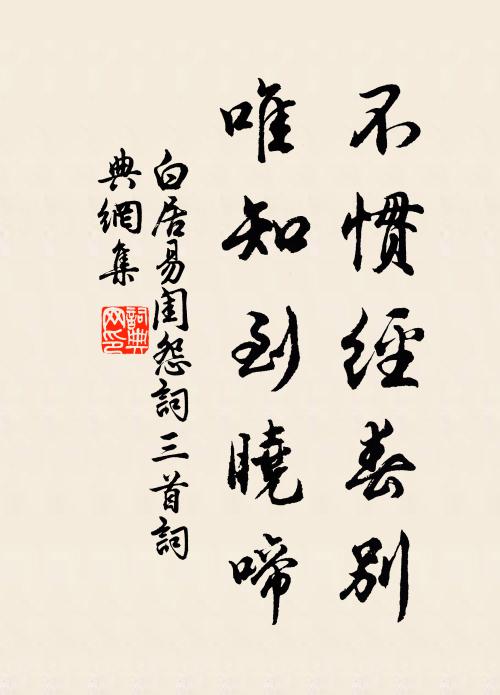 不慣經春別
唯知到曉啼
白居易閨怨詞三首詞
典網集
詞典
网印